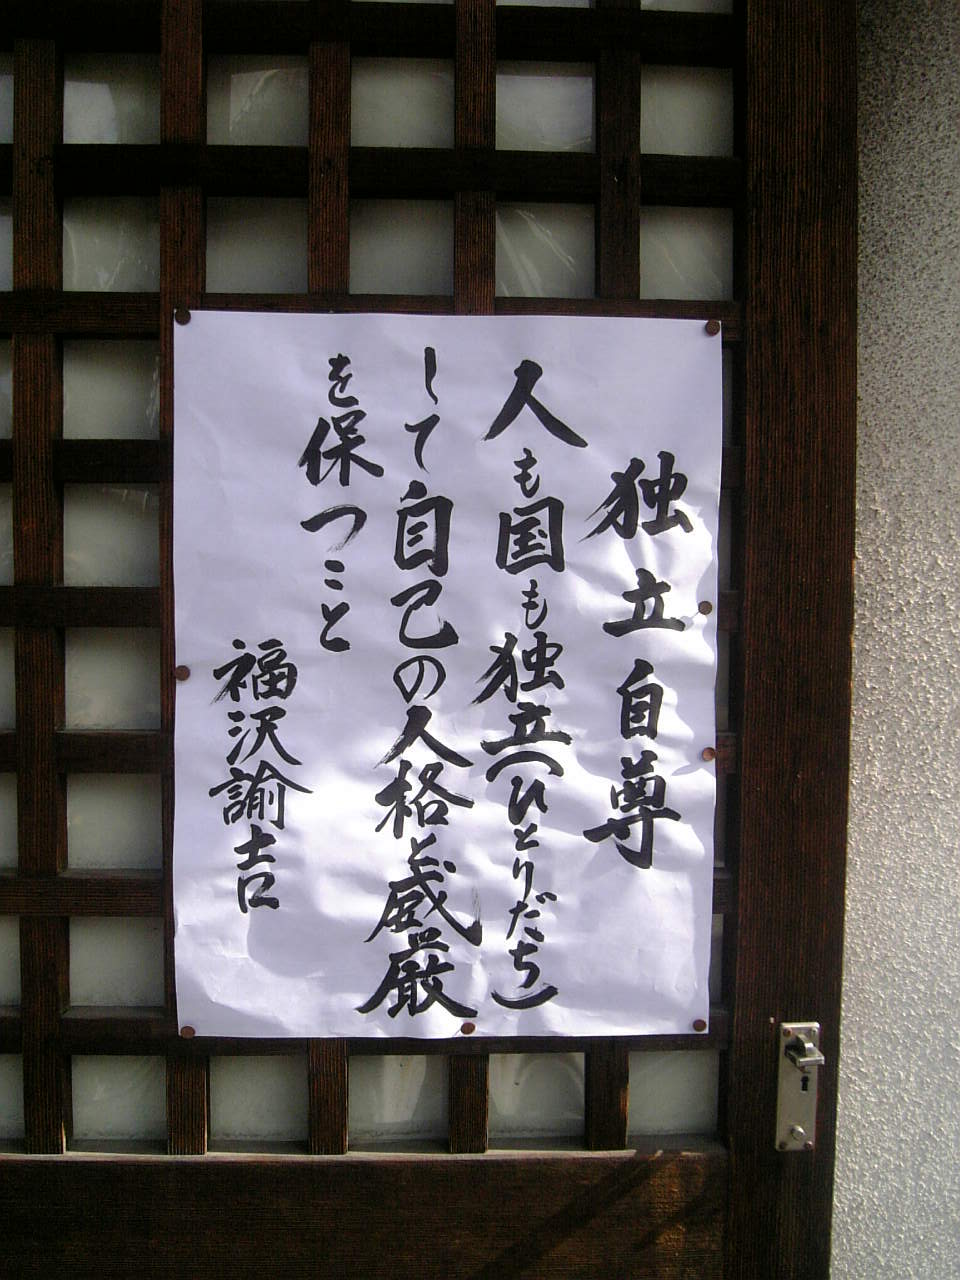 独立自尊
人も国も独立(ひとりだち)
して自己の人格と威厳
を保つこと
福沢諭吉